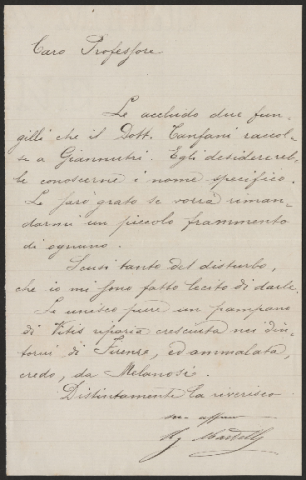 Caro Professore
Le accludo due fun-
gilli che il Dott. Tanfani raccol-
se a Giannutri. Egli desidererebb-
be conoscerne i nome specifico.
Le sarò grato se vorrà riman-
darmi un piccolo frammento
di ognuno.
Scusi tanto del disturbo,
che io mi sono fatto lecito di darle.
Le unisco pure un pampano
di Vitis riparia cresciuta nei din-
torni di Firenze, ed ammalata,
credo, da Melanosi.
Distintamente la reverisco
suo affmo
U Martelli